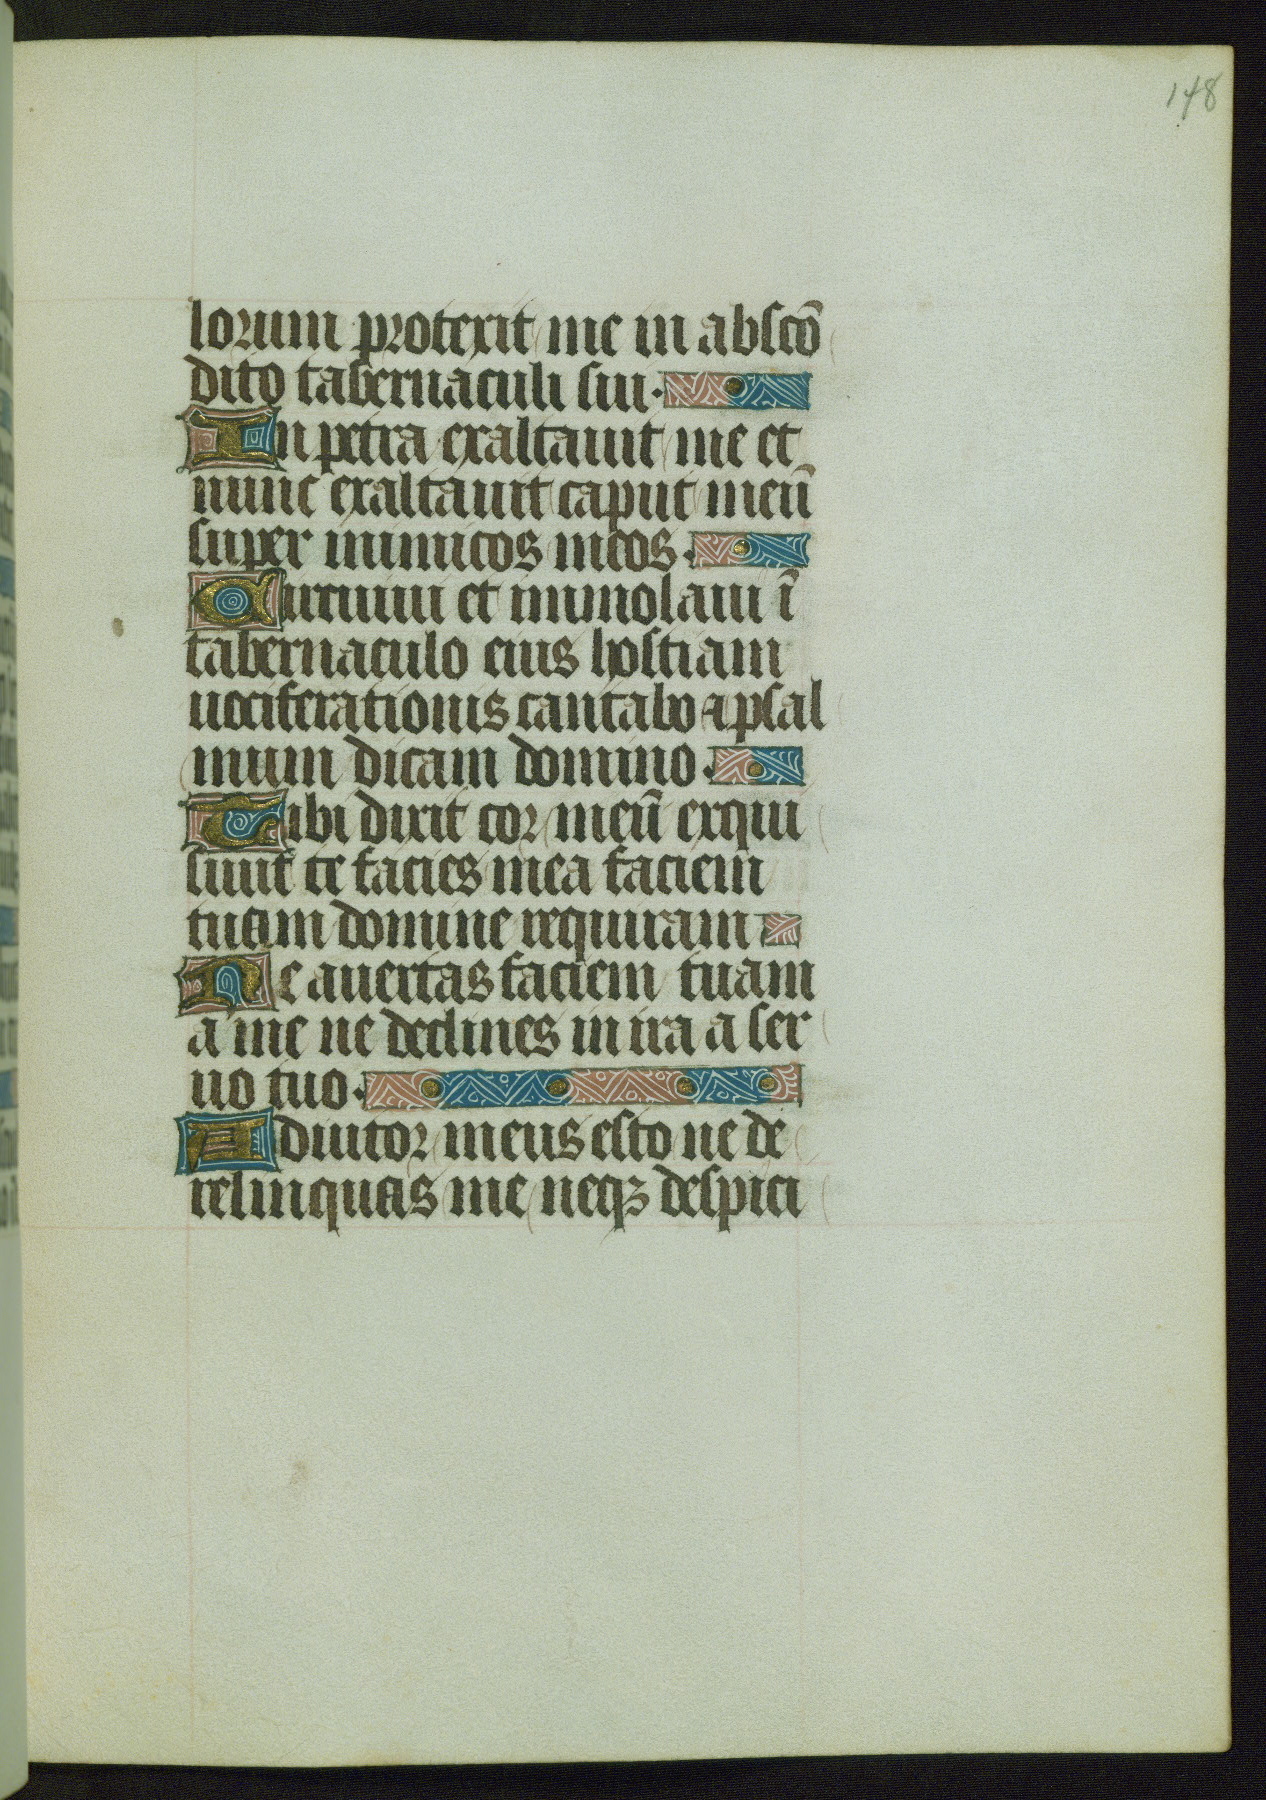 148
lorum protexit me in abscō
dito tabernaculi sui.
In petra exaltauit me et
nunc exaltauit caput meū
super inimicos meos.
Circuiui et immolaui ī
tabernaculo eius hostiam
uociferationis cantabo ⁊ psal
mum dicam domino.
Tibi dixit cor meū exqui
siuit te facies mea faciem
tuam domine requiram
Ne auertas faciem tuam
a me ne declines in ira a ser
uo tuo.
Adiutor meus esto ne de
relinquas me neqꝫ despici